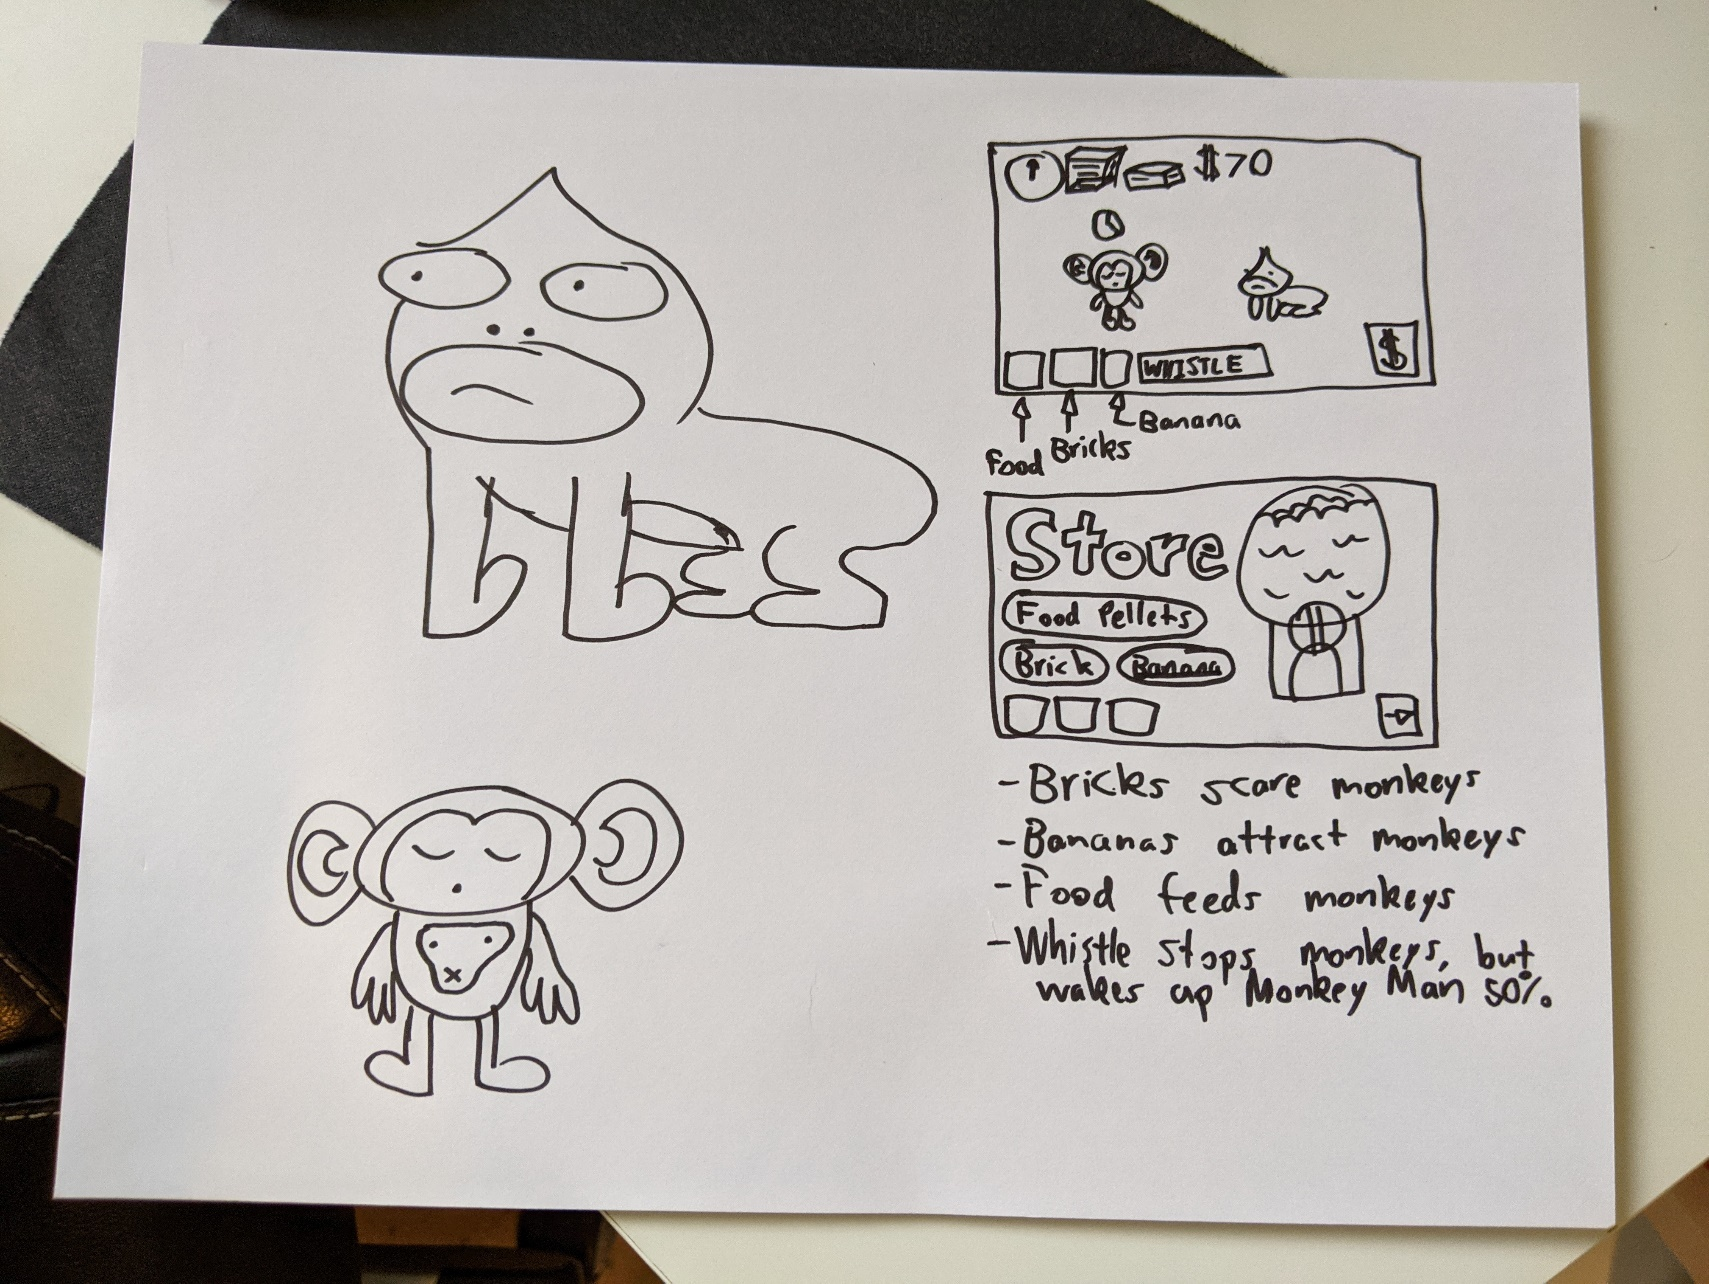 $70
WHISTLE
$
Banana
Food Bricks
Store
Food Pellets
Brick Banana
- Bricks scare monkeys
- Bananas attract monkeys
- Food feeds monkeys
- Whistle stops monkeys, but
wakes up Monkey Man 50%.